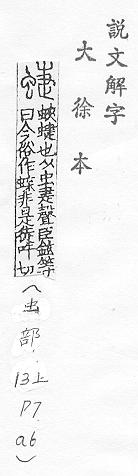 説文解字
大徐本
蜨 蛺蜨也从虫疌聲臣鉉等
曰今俗作蝶非是徒叶切
(虫部.13上P.7.a6)